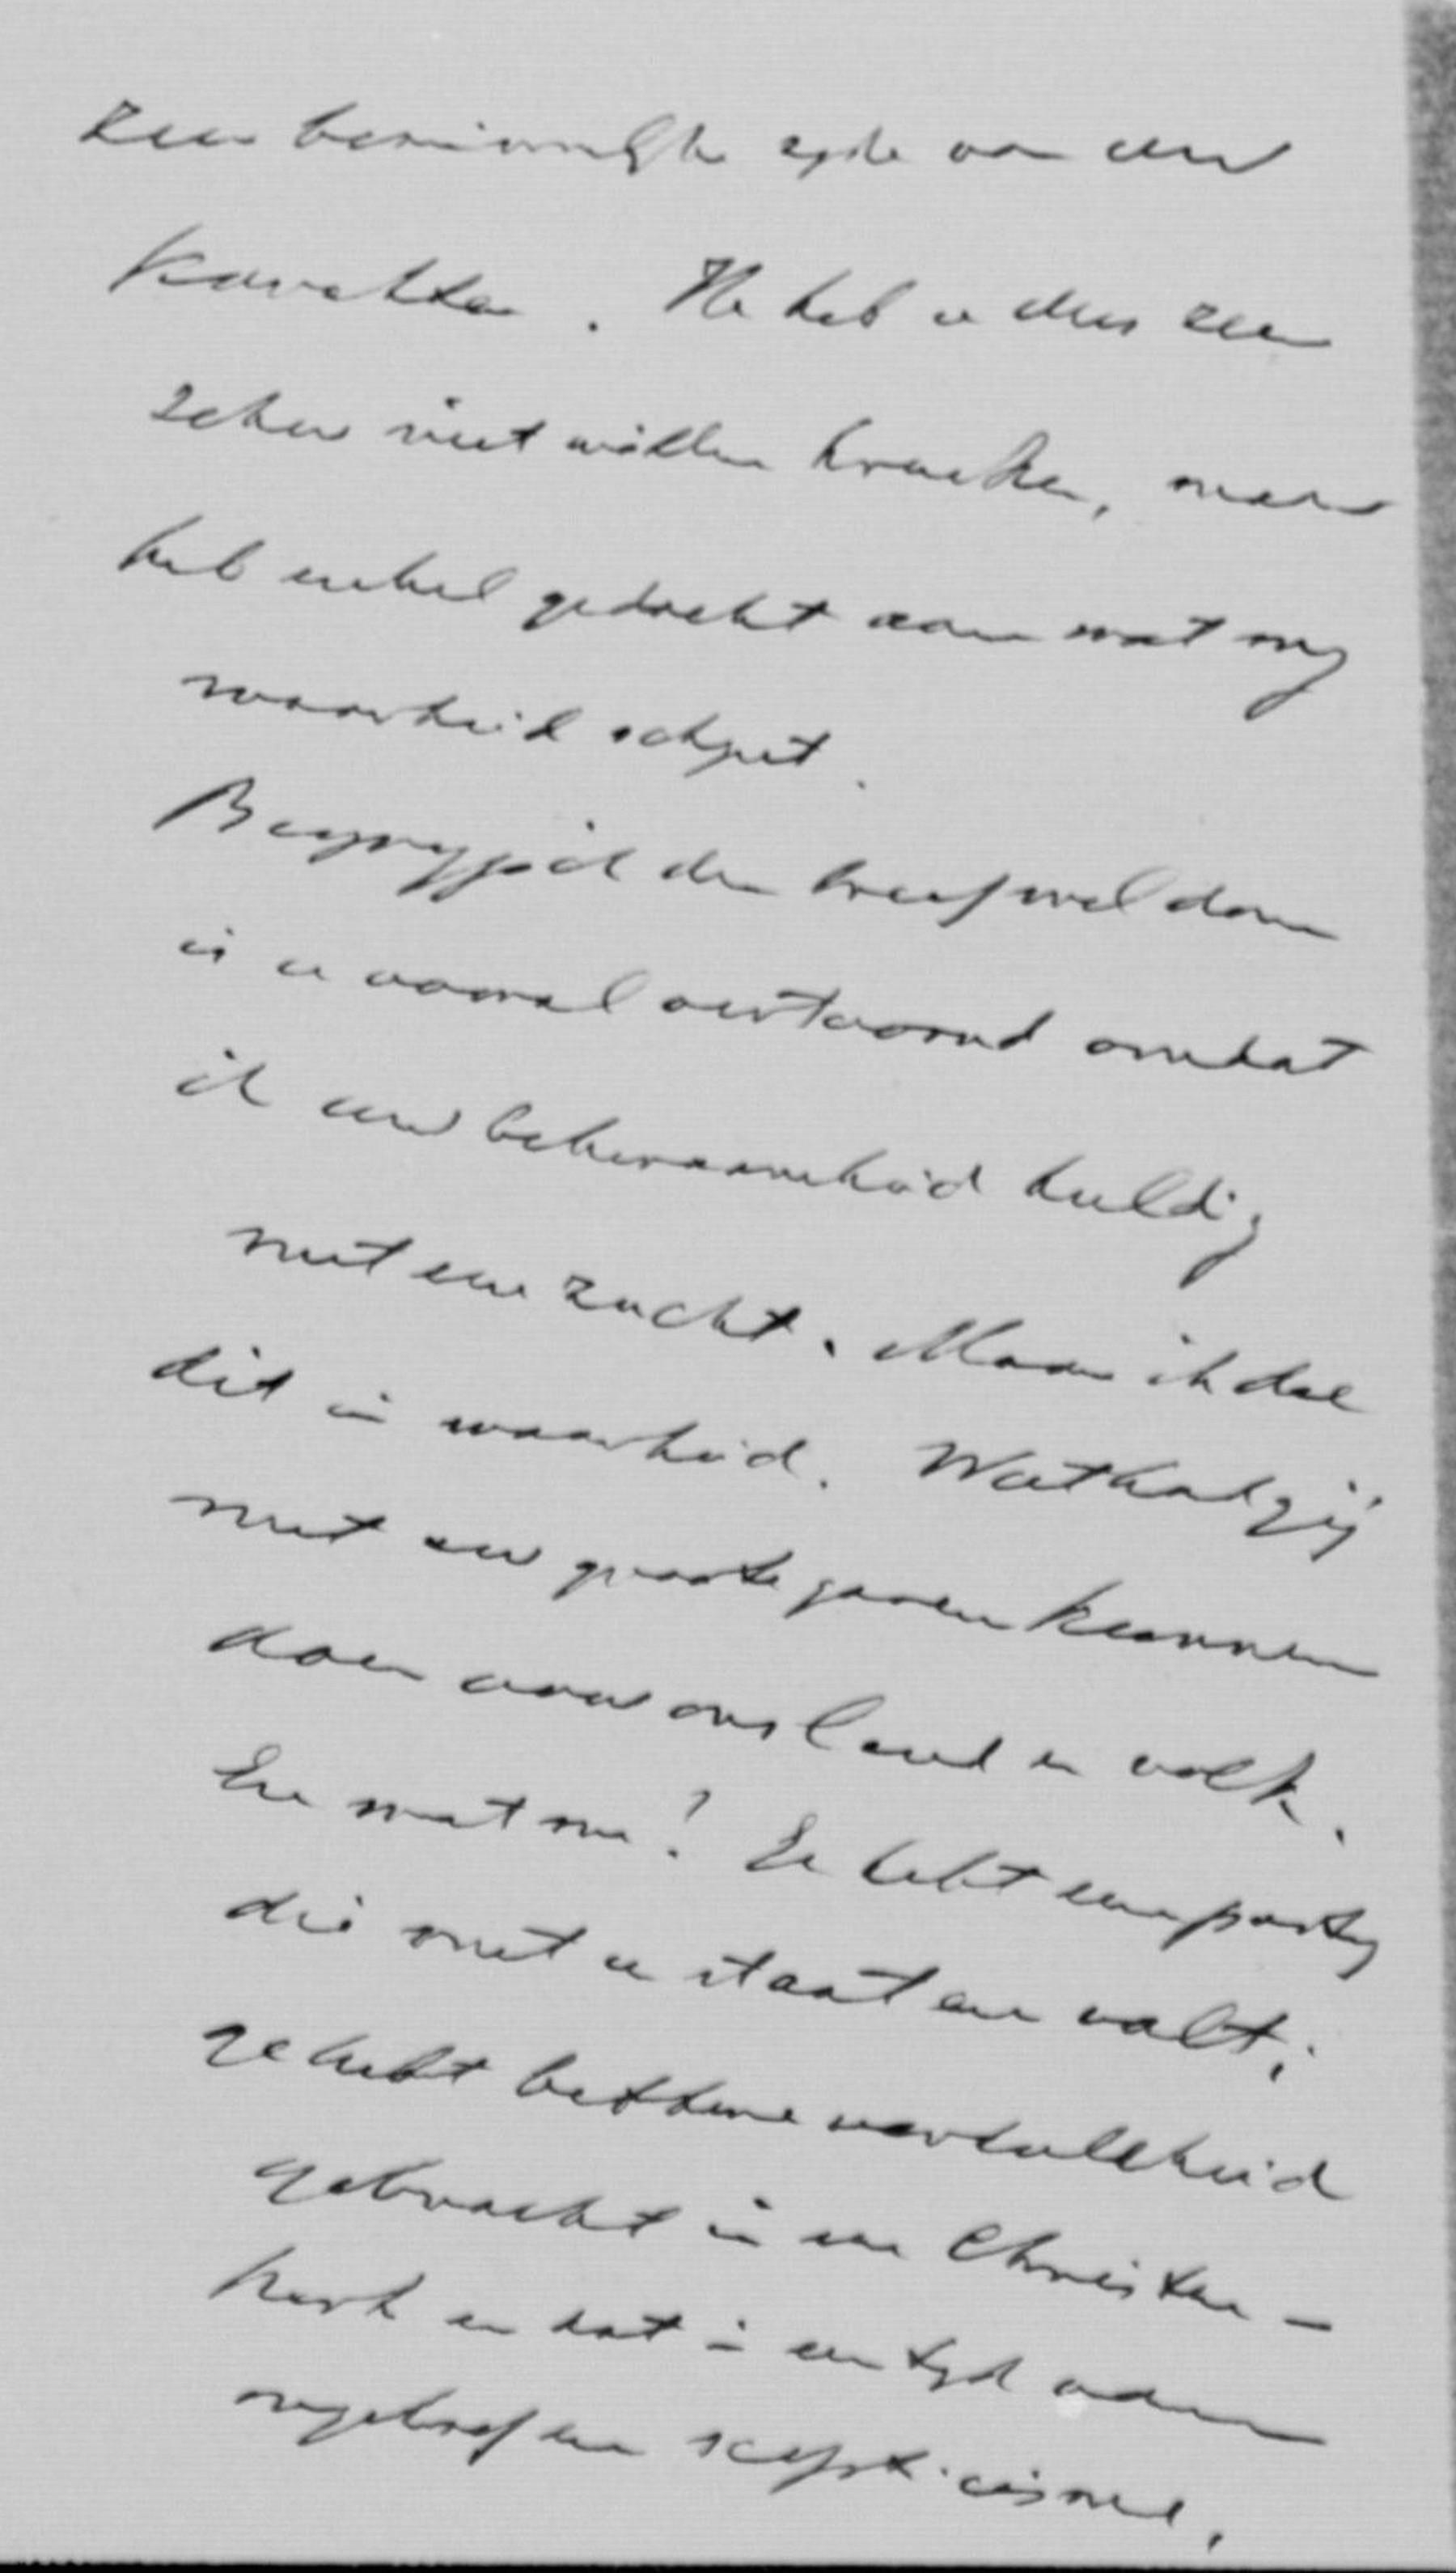 zeer beminnelijke zyde van uw
karakter. Ik heb u dus zeer
zeker niet willen krenken, maar
heb enkel gedacht aan wat my
waarheid schynt.
Begryp ik den brief wel dan
is u vooral ontstemd omdat
ik uw bekwaamheid huldig
met een zucht. Maar ik doe
dit in waarheid. Wat hadt gij
met uw groote gaven kunnen
doen voor ons land en volk.
En wat nu? Ge hebt een party
die met u staat en valt;
ge hebt bittere verdeeldheid
gebracht in een Christen-
kerk en dat in een tyd van
ongeloof en scepticisme.